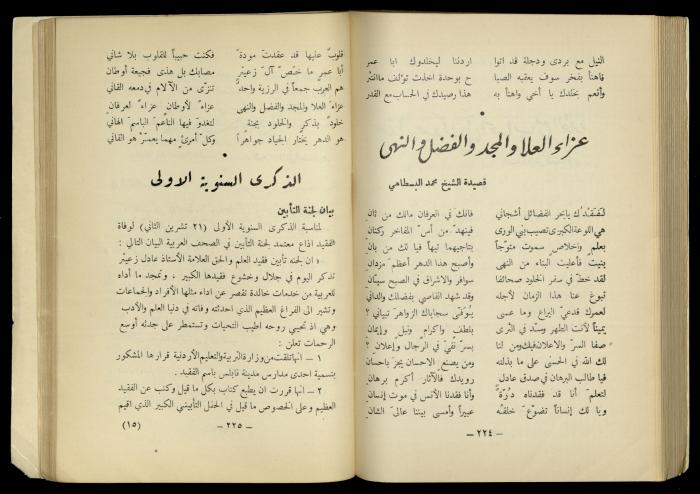 النيل مع بردى ودجلة قد اتوا اردننا ليخلدوك ابا عمر
فاهنأ بفخر سوف يعقبه الصبا ح بوحدة اخذت تؤلف ما انتثر
وأنعم بخلدك يا أخي واهنأ به هذا رصيدك في الحساب مع القدر
عزاء العلا والمجد والفضل والنهى
قصيدة الشيخ محمد البسطامي
لفقدك يا بحر الفضائل أشجاني فانك في العرفان مالك من ثان
هي اللوعة الكبرى تصيب بني الورى فينهد من أس المفاخر ركنان
بعلم واخلاص سموت متوجاً بتاجيهما تيهاً فيا لك من بان
بنيت فأعليت البناء من النهى وأصبح هذا الدهر أعظم مزدان
لقد خط في سفر الخلود صحائفا سوافر والاشراق في الصبح سيان
نبوغ عنا هذا الزمان لأجله وقد شهد القاصي بفضلك والداني
لعمرك قدعي اليراع وما عسى يوفي سجاياك الزواهر تبياني ؟
يميناً لأنت الطهر وسد في الثرى بلطف واكرام ونبل وإيمان
صفا السر والاعلان فيك ومن لنا بسر نقي في الرجال وإعلان ؟
لك الله في الحسنى على ما بذلته ومن يصنع الاحسان يجز باحسان
فيا طالب البرهان في صدق عادل رويدك فالآثار أكرم برهان
لتعلم أنا قد فقدناه درة وأنا فقدنا الأنس في موت إنسان
ويا لك إنساناً تضوع خلقه عبيراً وأمسى بيننا عالي الشان
- ٢٢٤ -
قلوب عليها قد عقدت مودة فكنت حبيباً للقلوب بلا شاني
أبا عمر ما خص آل زعيتر مصابك بل هذى فجيعة أوطان
هم العرب جمعاً في الرزية واحد تنزى من الآلام في دمعه القاني
عزاء العلا والمجد والفضل والنهى عزاء لأوطان عزاء لعرفان
خلود بذكر والخلود بجنة لتغدو فيها الناعم الباسم الهاني
هو الدهر يختار الجياد جواهراً وكل أمرئ مهما يعمر هو الفاني
الذكرى السنوية الاولى
بيان لجنة التأبين
لمناسبة الذكرى السنوية الأولى (٢١ تشرين الثاني) لوفاة
الفقيد اذاع معتمد لجنة التأبين في الصحف العربية البيان التالي :
« ان لجنة تأبين فقيد العلم والحق العلامة الأستاذ عادل زعيتر
تذكر اليوم في جلال وخشوع فقيدها الكبير ، وتمجد ما أداه
للعربية من خدمات خالدة تقصر عن اداء مثلها الأفراد والجماعات
وتشير الى الفراغ العظيم الذي احدثته وفاته في دنيا العلم والأدب
وهي اذ تحيي روحه اطيب التحيات وتستمطر على جدثه أوسع
الرحمات تعلن :
١ - انها تلقت من وزارة التربية والتعليم الأردنية قرارها المشكور
بتسمية احدى مدارس مدينة نابلس باسم الفقيد .
٢ - انها قررت ان يطبع كتاب بكل ما قيل وكتب عن الفقيد
العظيم وعلى الخصوص ما قيل في الحفل التأبيني الكبير الذي اقيم
- ٢٢٥ - (١٥)